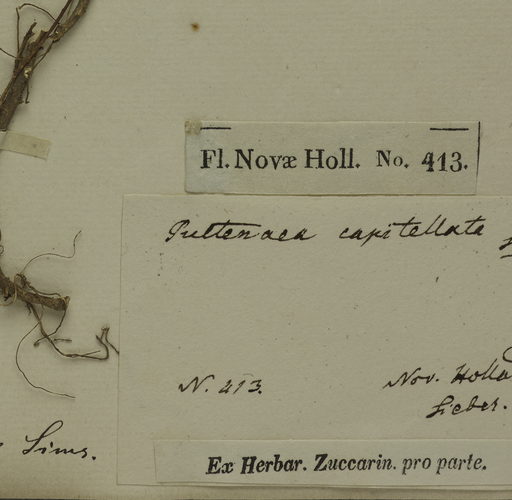 Fl. Novæ Holl. No. 413.
Pultenaea capitellata
N. 413.
Nov. Holla
Sieber.
Sims.
Ex Herbar. Zuccarin. pro parte.